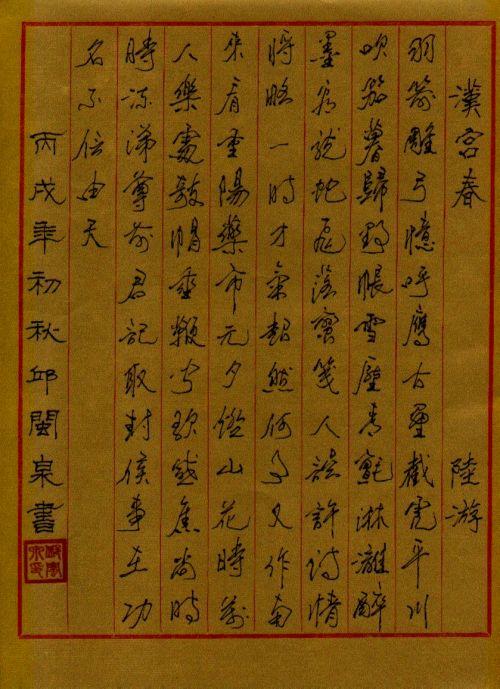 漢宮春 陸游
羽箭雕弓憶呼鷹古壘截虎平川
吹笳暮歸野帳雪壓青氈淋漓醉
墨看龍蛇飛落蠻箋人誤許詩情
將略一時才氣超然何事又作南
來看重陽藥市元夕燈山花時萬
人樂處欹帽垂鞭聞歌感舊尚時
時流涕尊前君記取封侯事在功
名不信由天
丙戌年初秋邱閩泉書